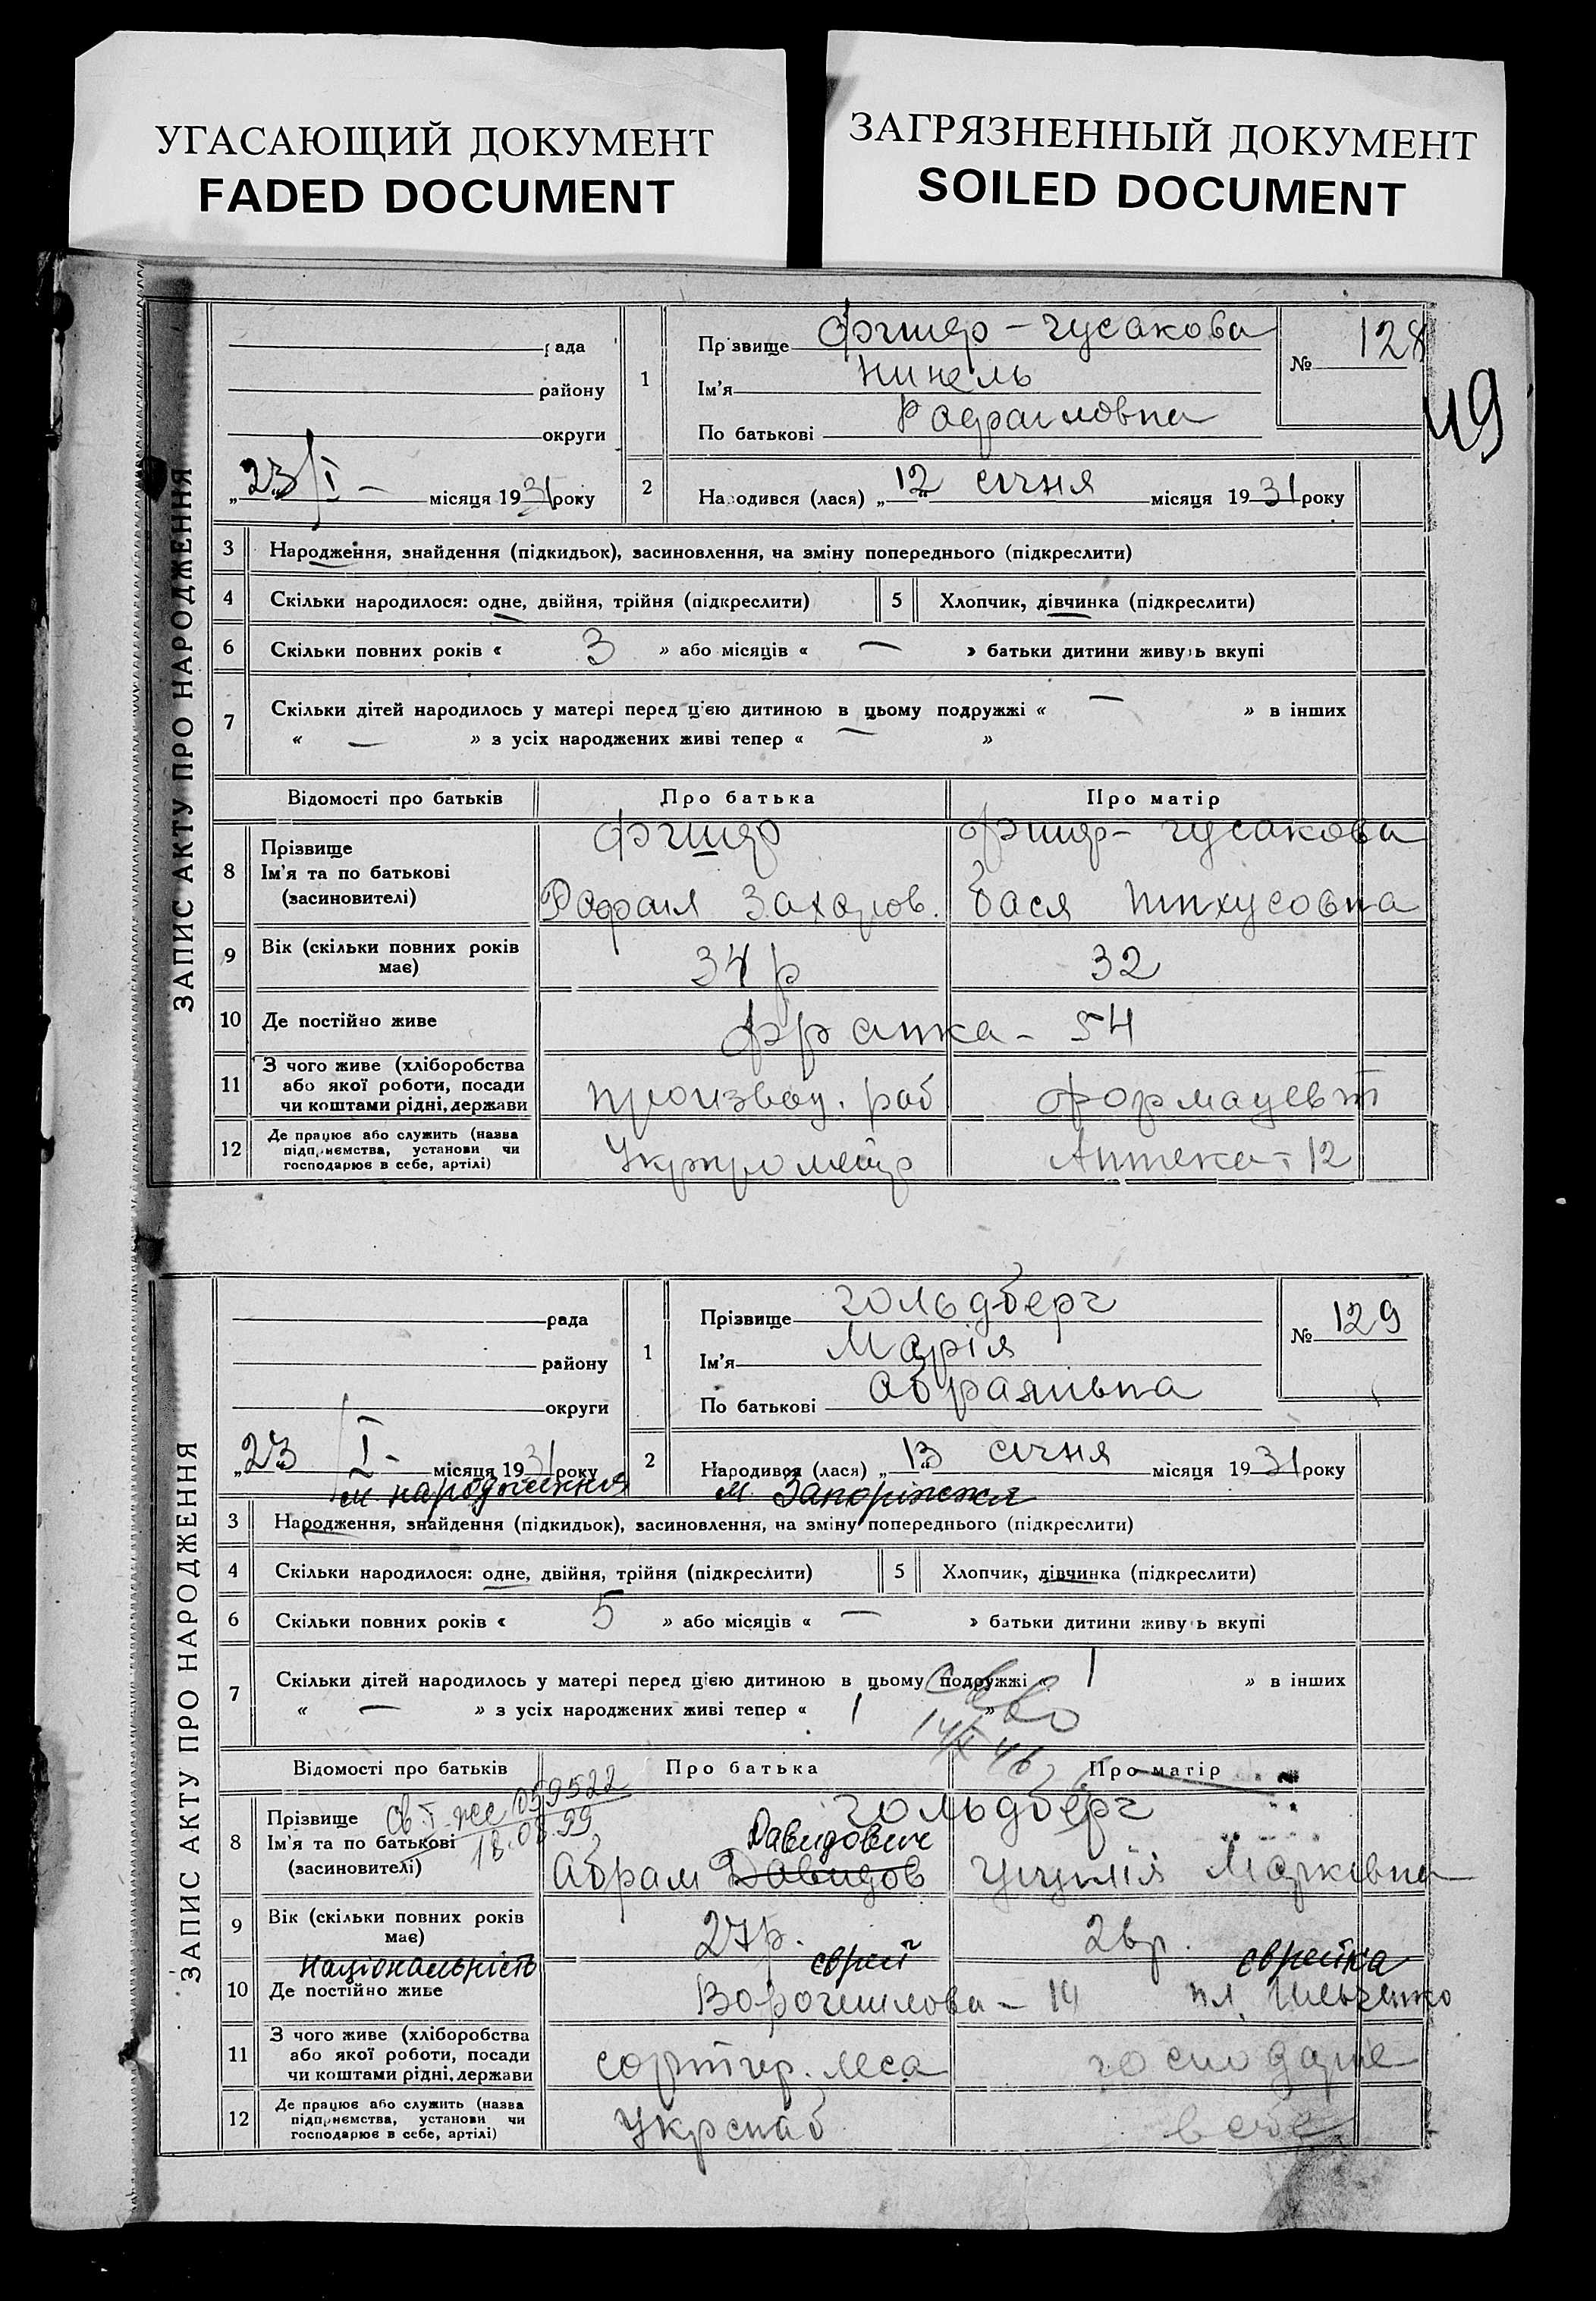 УГАСАЮЩИЙ ДОКУМЕНТ
FADED DOCUMENT
ЗАГРЯЗНЕННЫЙ ДОКУМЕНТ
SOILED DOCUMENT
49
ЗАПИС АКТУ ПРО НАРОДЖЕННЯ
рада
району
округи
„23/I – місяця 1931 року
1 Прізвище Фішер – Гусакова
Ім'я Нинель
По батькові Рафаиловна
№ 128
2 Народився (лася) „12 січня місяця 1931 року
3 Народження, знайдення (підкидьок), засиновлення, на зміну попереднього (підкреслити)
4 Скільки народилося: одне, двійня, трійня (підкреслити) 5 Хлопчик, дівчинка (підкреслити)
6 Скільки повних років « 3 » або місяців « — » батьки дитини живуть вкупі
7 Скільки дітей народилось у матері перед цією дитиною в цьому подружжі « — » в інших
« — » з усіх народжених живі тепер « — »
Відомості про батьків Про батька Про матір
8 Прізвище Фішер Фішер – Гусакова
Ім'я та по батькові
(засновителі) Рафаил Захаров. Бася
9 Вік (скільки повних років має) 34 р 32
10 Де постійно живе Франка – 54
11 З чого живе (хліборобства
або якої роботи, посади
чи коштами рідні, держави производ. раб фармацевт
12 Де працює або служить (назва
підприємства, установи чи
господарює в себе, артілі) Аптека – 12
ЗАПИС АКТУ ПРО НАРОДЖЕННЯ
рада
району
округи
„23 / I – місяця 1931 року
1 Прізвище Гольдберг
Ім'я Марія
По батькові Абрамівна
№ 129
2 Народився (лася) „13 січня місяця 1931 року
м. народження м. Запоріжжя
3 Народження, знайдення (підкидьок), засиновлення, на зміну попереднього (підкреслити)
4 Скільки народилося: одне, двійня, трійня (підкреслити) 5 Хлопчик, дівчинка (підкреслити)
6 Скільки повних років « 5 » або місяців « — » батьки дитини живуть вкупі
7 Скільки дітей народилось у матері перед цією дитиною в цьому подружжі « 1 » в інших
« — » з усіх народжених живі тепер « 1 »
Відомості про батьків Про батька Про матір
059522
18.08.99
8 Прізвище Гольдберг
Ім'я та по батькові Давидович
(засиновителі) Абрам Давидов Марківна
9 Вік (скільки повних років має) 27 р. 26 р.
Національність єврей єврейка
10 Де постійно живе Ворошилова – 14
11 З чого живе (хліборобства
або якої роботи, посади
чи коштами рідні, держави господарює
12 Де працює або служить (назва
підприємства, установи чи
господарює в себе, артілі) Укрснаб в себе